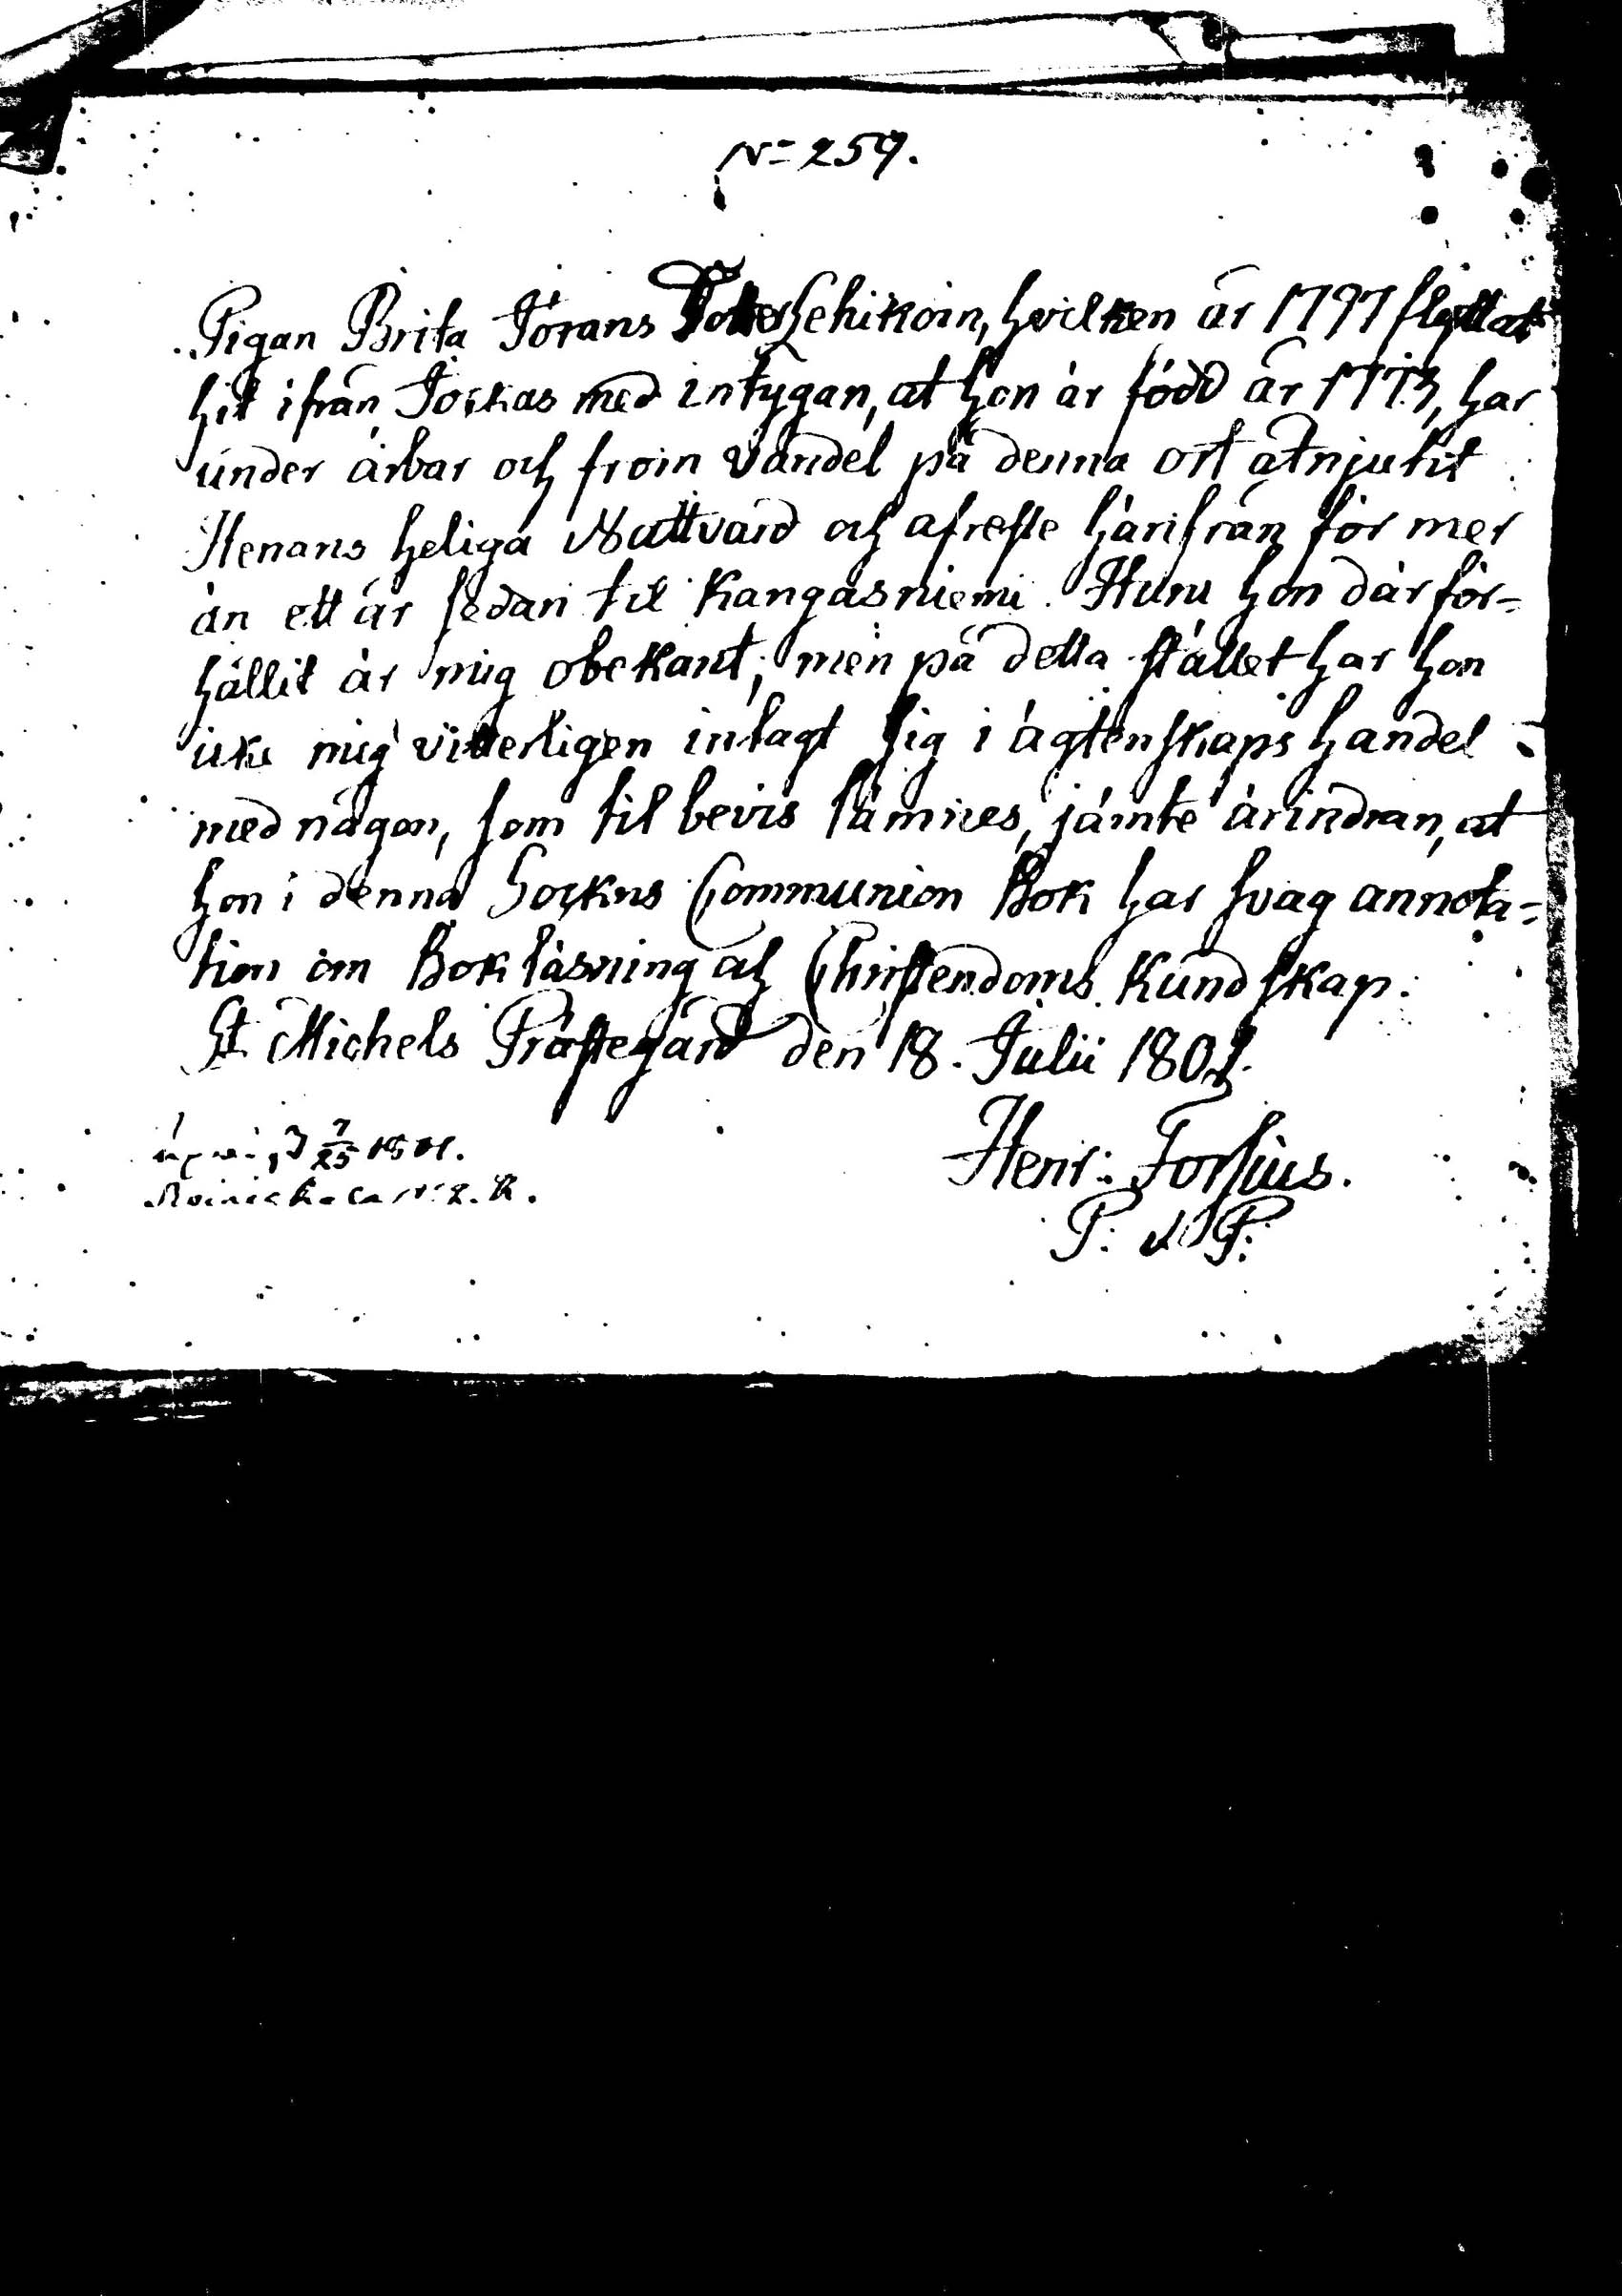 N= 259.
Pigan Brita Jörans Dotter Lehikoin, hvilken år 1797 flyttat
hit ifrån Jockas med intygan, at hon är född år 1773, har
under ärbar och from vandel på denna ort åtnjutit
Herrans heliga Nattvard och afreste härifrån för mer
än ett år sedan til Kangasniemi. Huru hon där för-
hållit är mig obekant; men på detta stället har hon
icke mig vitterligen intagt sig i ägtenskaps handel
med någon, som til bevis lämnes, jämte ärindran, at
hon i denna Sockns Communion Bok har svag annota-
tion om Bokläsning och Christendoms Kundskap.
St Michels Prästegård den 18. Julii 1801.
Henr: Forsius.
P. & P.
7/25 1801.